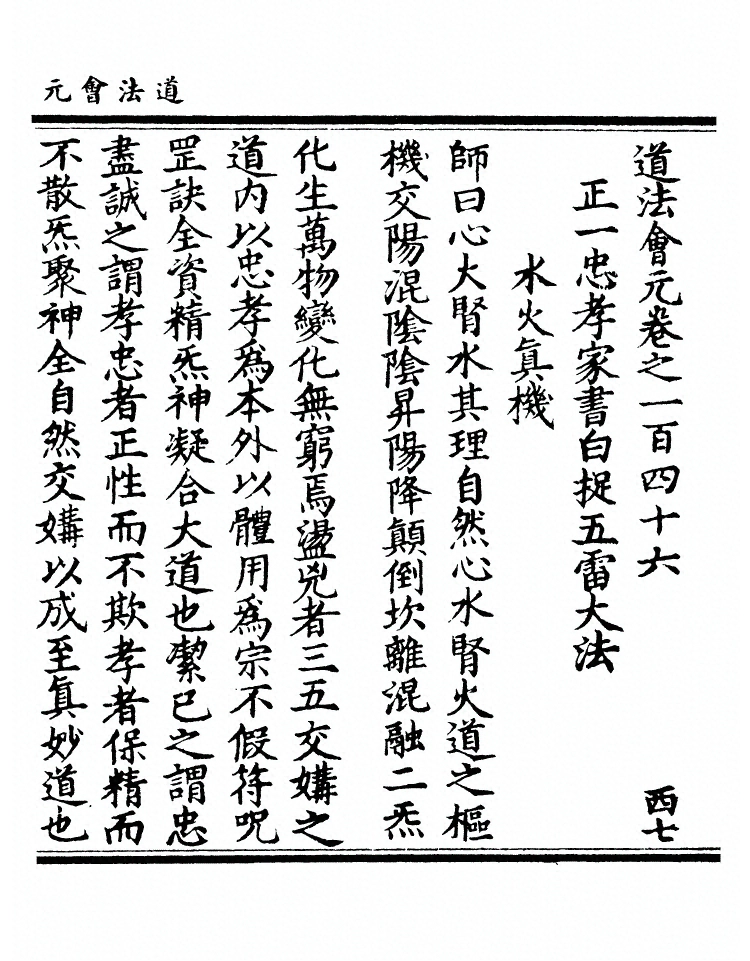 道法會元
道法會元卷之一百四十六　西七
正一忠孝家書白捉五雷大法
水火眞機
師曰心大腎水其理自然心水腎火道之樞
機交陽混陰陰昇陽降顛倒坎離混融二炁
化生萬物變化無窮焉盪兇者三五交媾之
道内以忠孝爲本外以體用爲宗不假符呪
罡訣全資精炁神凝合大道也潔已之謂忠
盡誠之謂孝忠者正性而不欺孝者保精而
不散炁聚神全自然交媾以成至眞妙道也